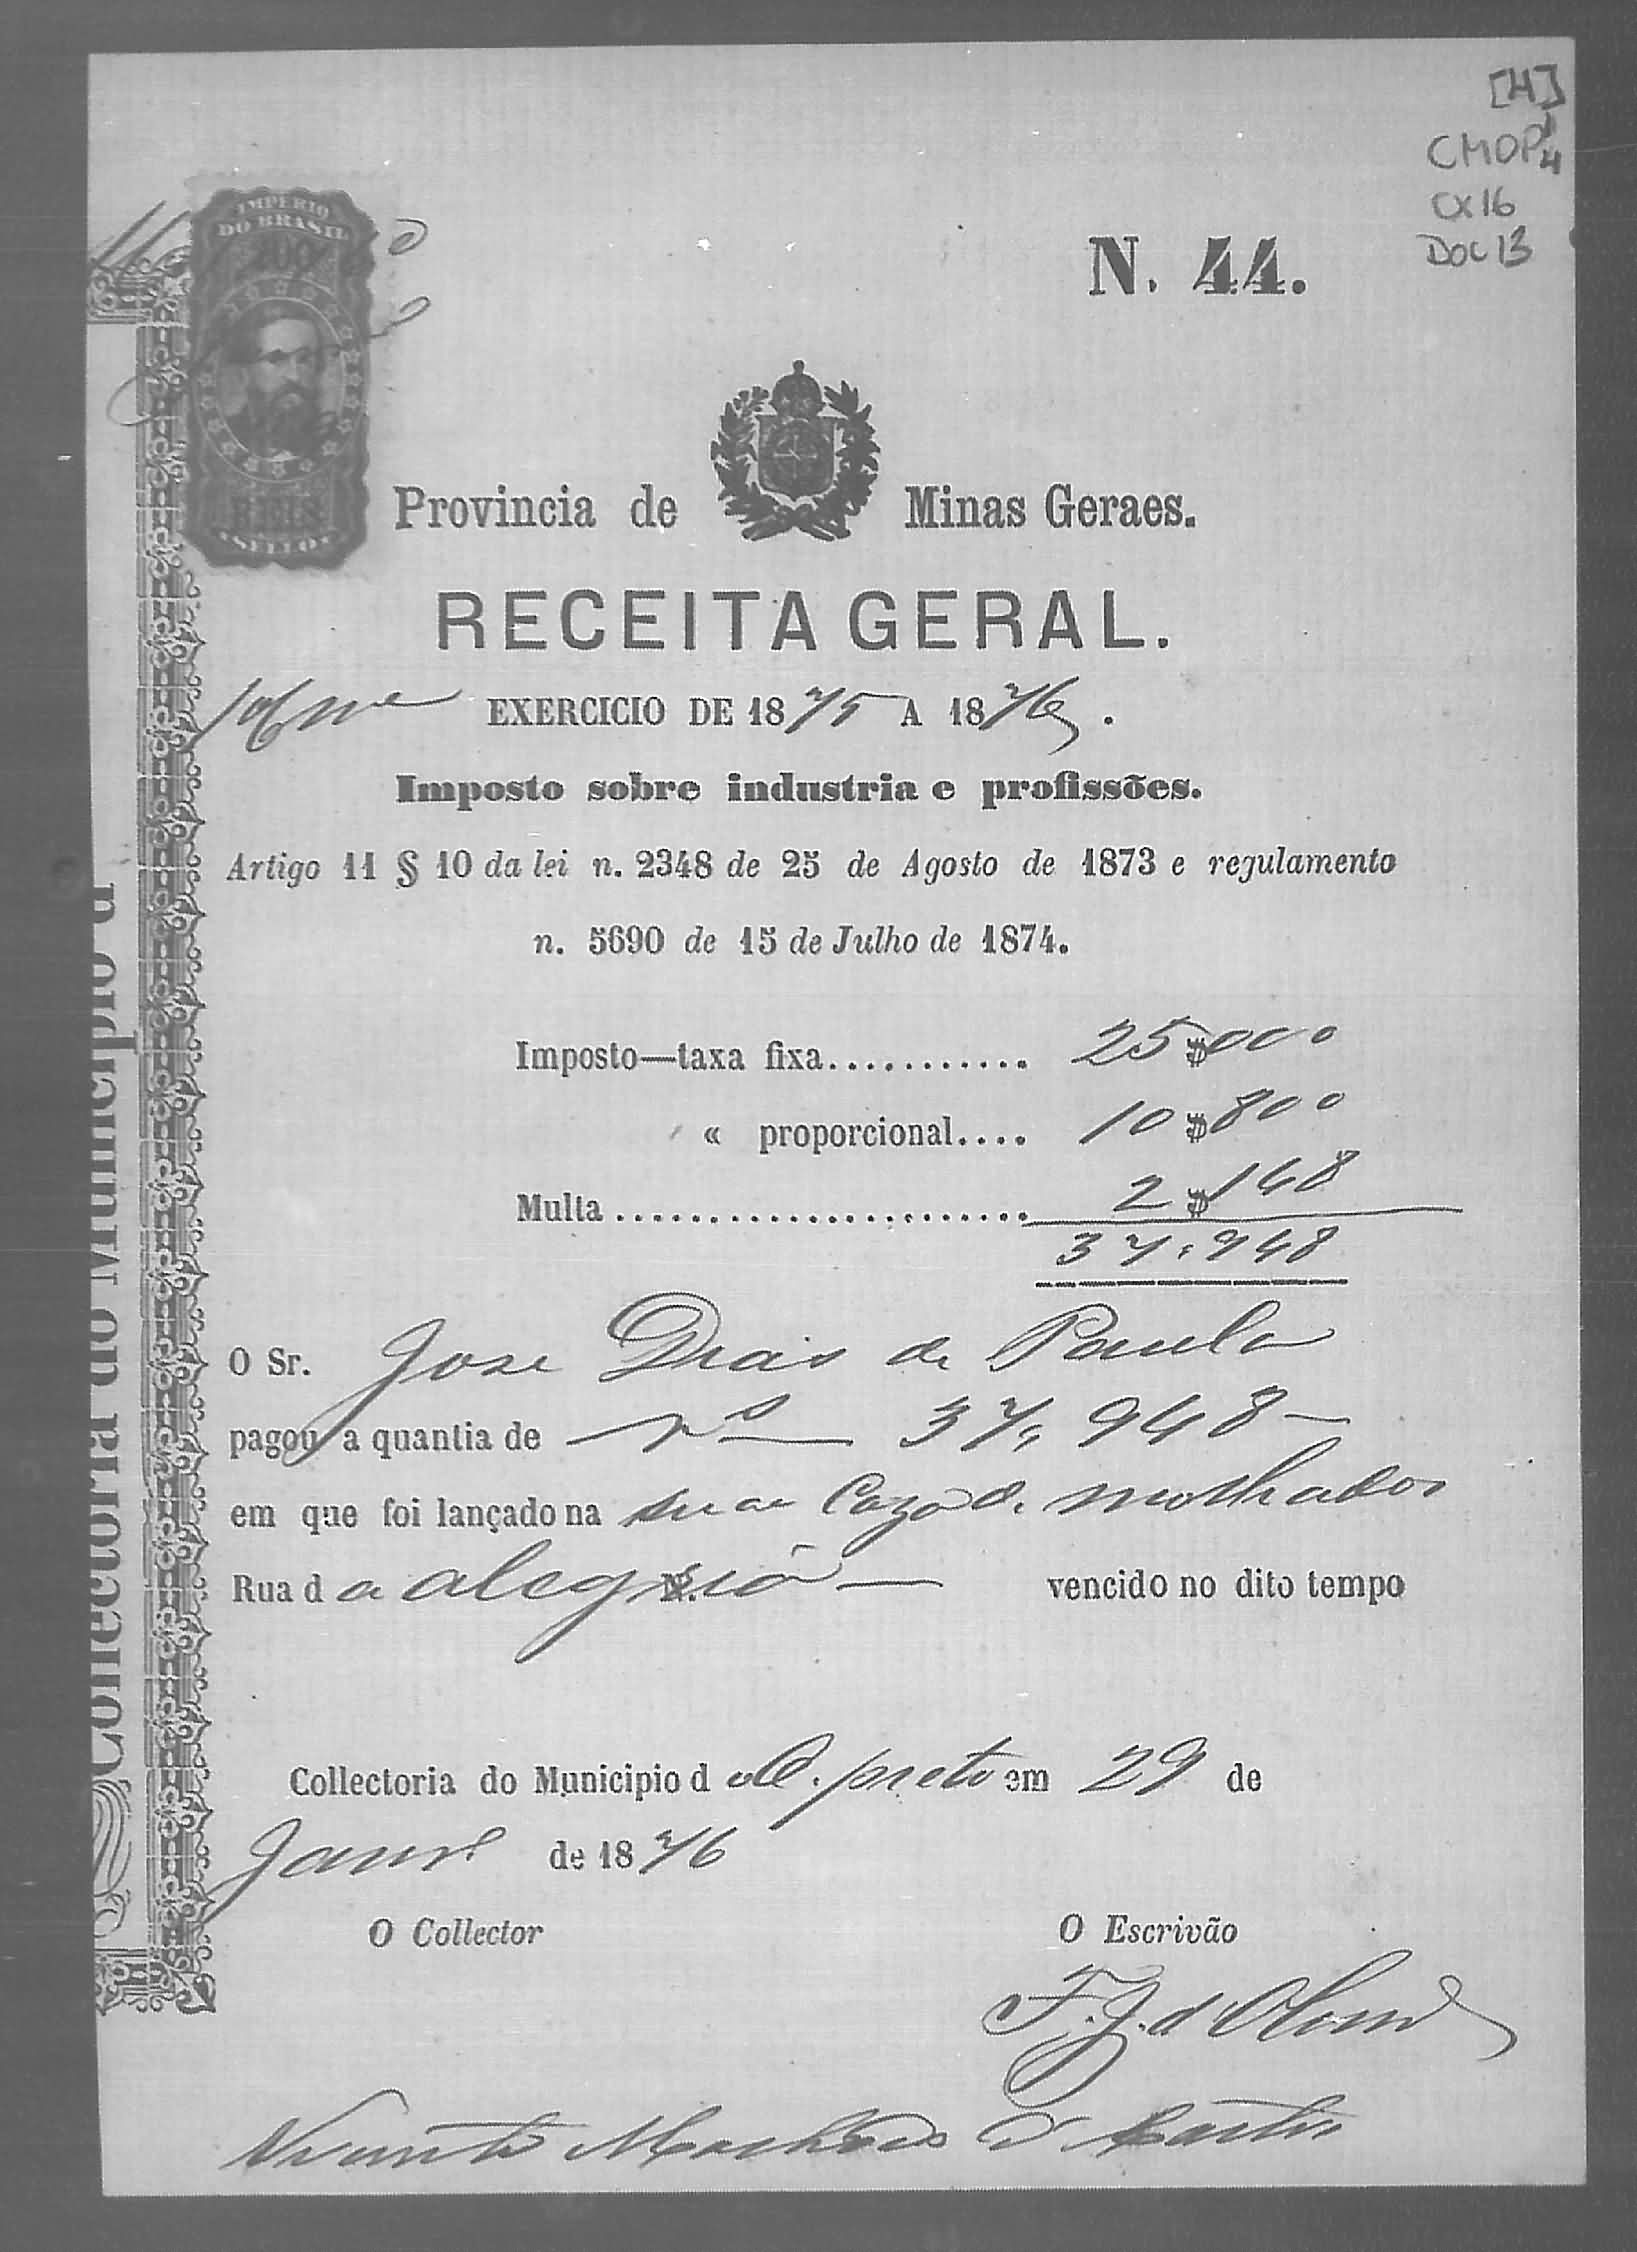 [4]
CMOP
CX16
DOC 13
IMPERIO
DO BRASIL
200
REIS
SELLO
N. 44.
Provincia de Minas Geraes.
RECEITA GERAL.
EXERCICIO DE 1875 A 1876.
Imposto sobre industria e profissões.
Artigo 11 § 10 da lei n. 2348 de 25 de Agosto de 1873 e regulamento
n. 5690 de 15 de Julho de 1874.
Imposto—taxa fixa........... 25$000
« proporcional.... 10$800
Multa...................... 2$148
37,948
O Sr. Jose Dias de Paula
pagou a quantia de rs 37,948
em que foi lançado na sua Caza de molhados
Rua da alegria vencido no dito tempo
Collectoria do Municipio d o O. preto em 29 de
Janrº de 1876
O Collector O Escrivão
F. J. d
Vicente Machado d Castro
Collectoria do Municipio d